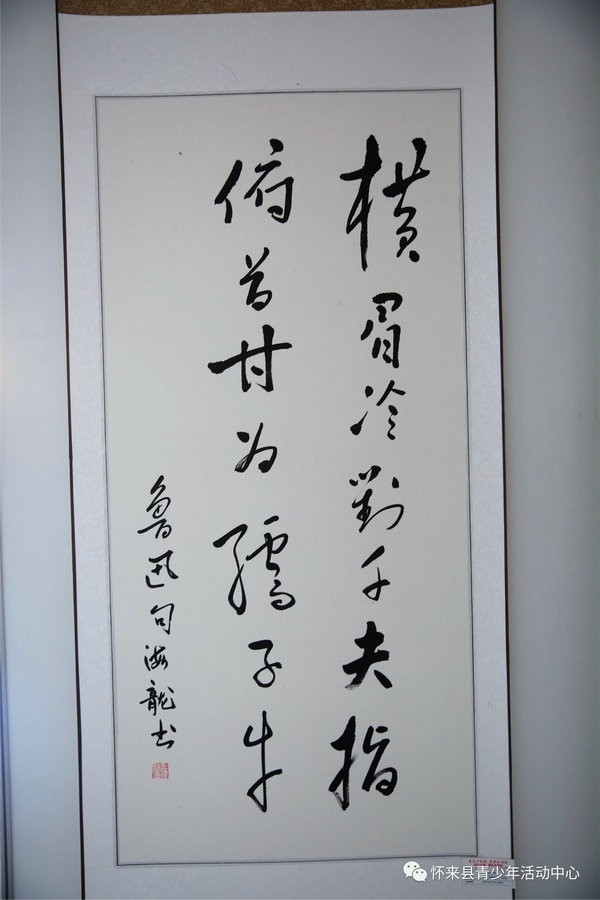 横眉冷對千夫指
俯首甘为孺子牛
鲁迅句海龍书
怀来县青少年活动中心